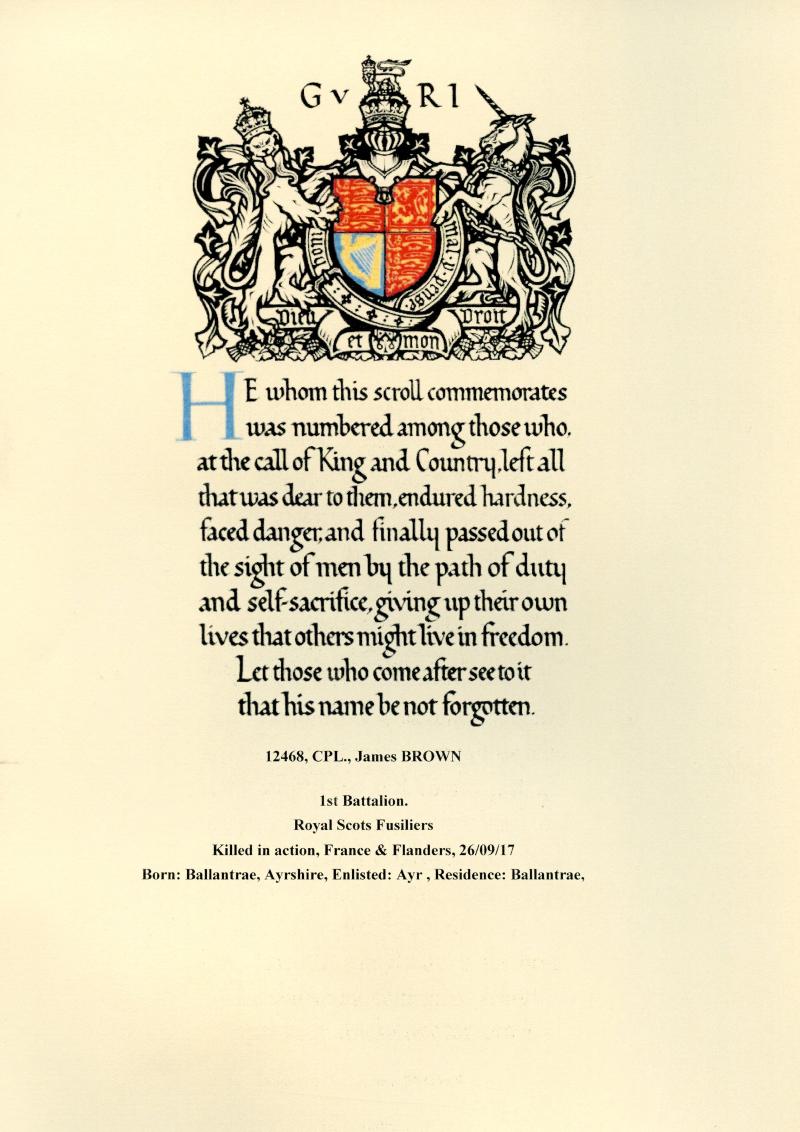 G V R I
honi mal y pense
Dieu Droit
et mon
HE whom this scroll commemorates
was numbered among those who,
at the call of King and Country, left all
that was dear to them, endured hardness,
faced danger, and finally passed out of
the sight of men by the path of duty
and self-sacrifice, giving up their own
lives that others might live in freedom.
Let those who come after see to it
that his name be not forgotten.
12468, CPL., James BROWN
1st Battalion.
Royal Scots Fusiliers
Killed in action, France & Flanders, 26/09/17
Born: Ballantrae, Ayrshire, Enlisted: Ayr , Residence: Ballantrae,